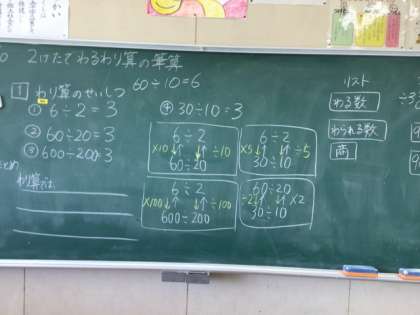 2けたでわるわり算の筆算
1 わり算のせいしつ
60÷10=6
① 6÷2=3
② 60÷20=3
③ 600÷200=3
④ 30÷10=3
まとめ
わり算では、
6÷2
×10 ÷10
60÷20
6÷2
×5 ÷5
30÷10
6÷2
×100 ÷100
600÷200
60÷20
÷2 ×2
30÷10
リスト
わる数
わられる数
商